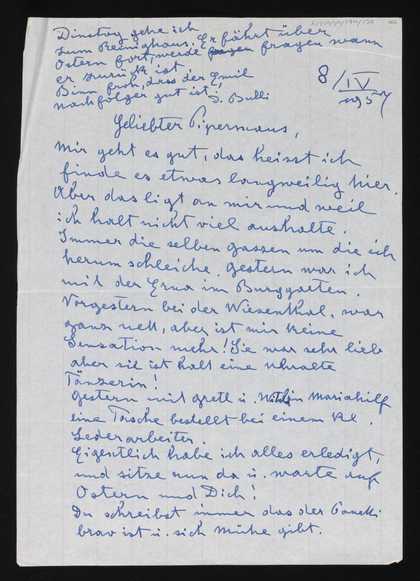 Dinstag gehe ich
zum Reininghaus. Er fährt über
Ostern fort, werde fragen wann
er zurück ist.
Binn froh, dass der Emil
nachfolger gut ist!
S. Bulli
8/IV
Geliebter Pipermaus,
Mir geht es gut, das heisst ich
finde es etwas langweilig hier.
Aber das ligt an mir und weil
ich halt nicht viel aushalte.
Immer die selben gassen um die ich
herum schleiche. Gestern war ich
mit der Erna im Burggarten.
Vorgestern bei der Wiesenthal, war
ganz nett, aber ist mir keine
Sensation mehr! Sie war sehr lieb
aber sie ist halt eine uhralte
Tänzerin!
Gestern mit gretl u. in Mariahilf
eine Tasche bestellt bei einem kl.
Lederarbeiter.
Eigentlich habe ich alles erledigt,
und sitze nun da u. warte auf
Ostern und Dich!
Du schreibst immer das der
brav ist u. sich mühe gibt.